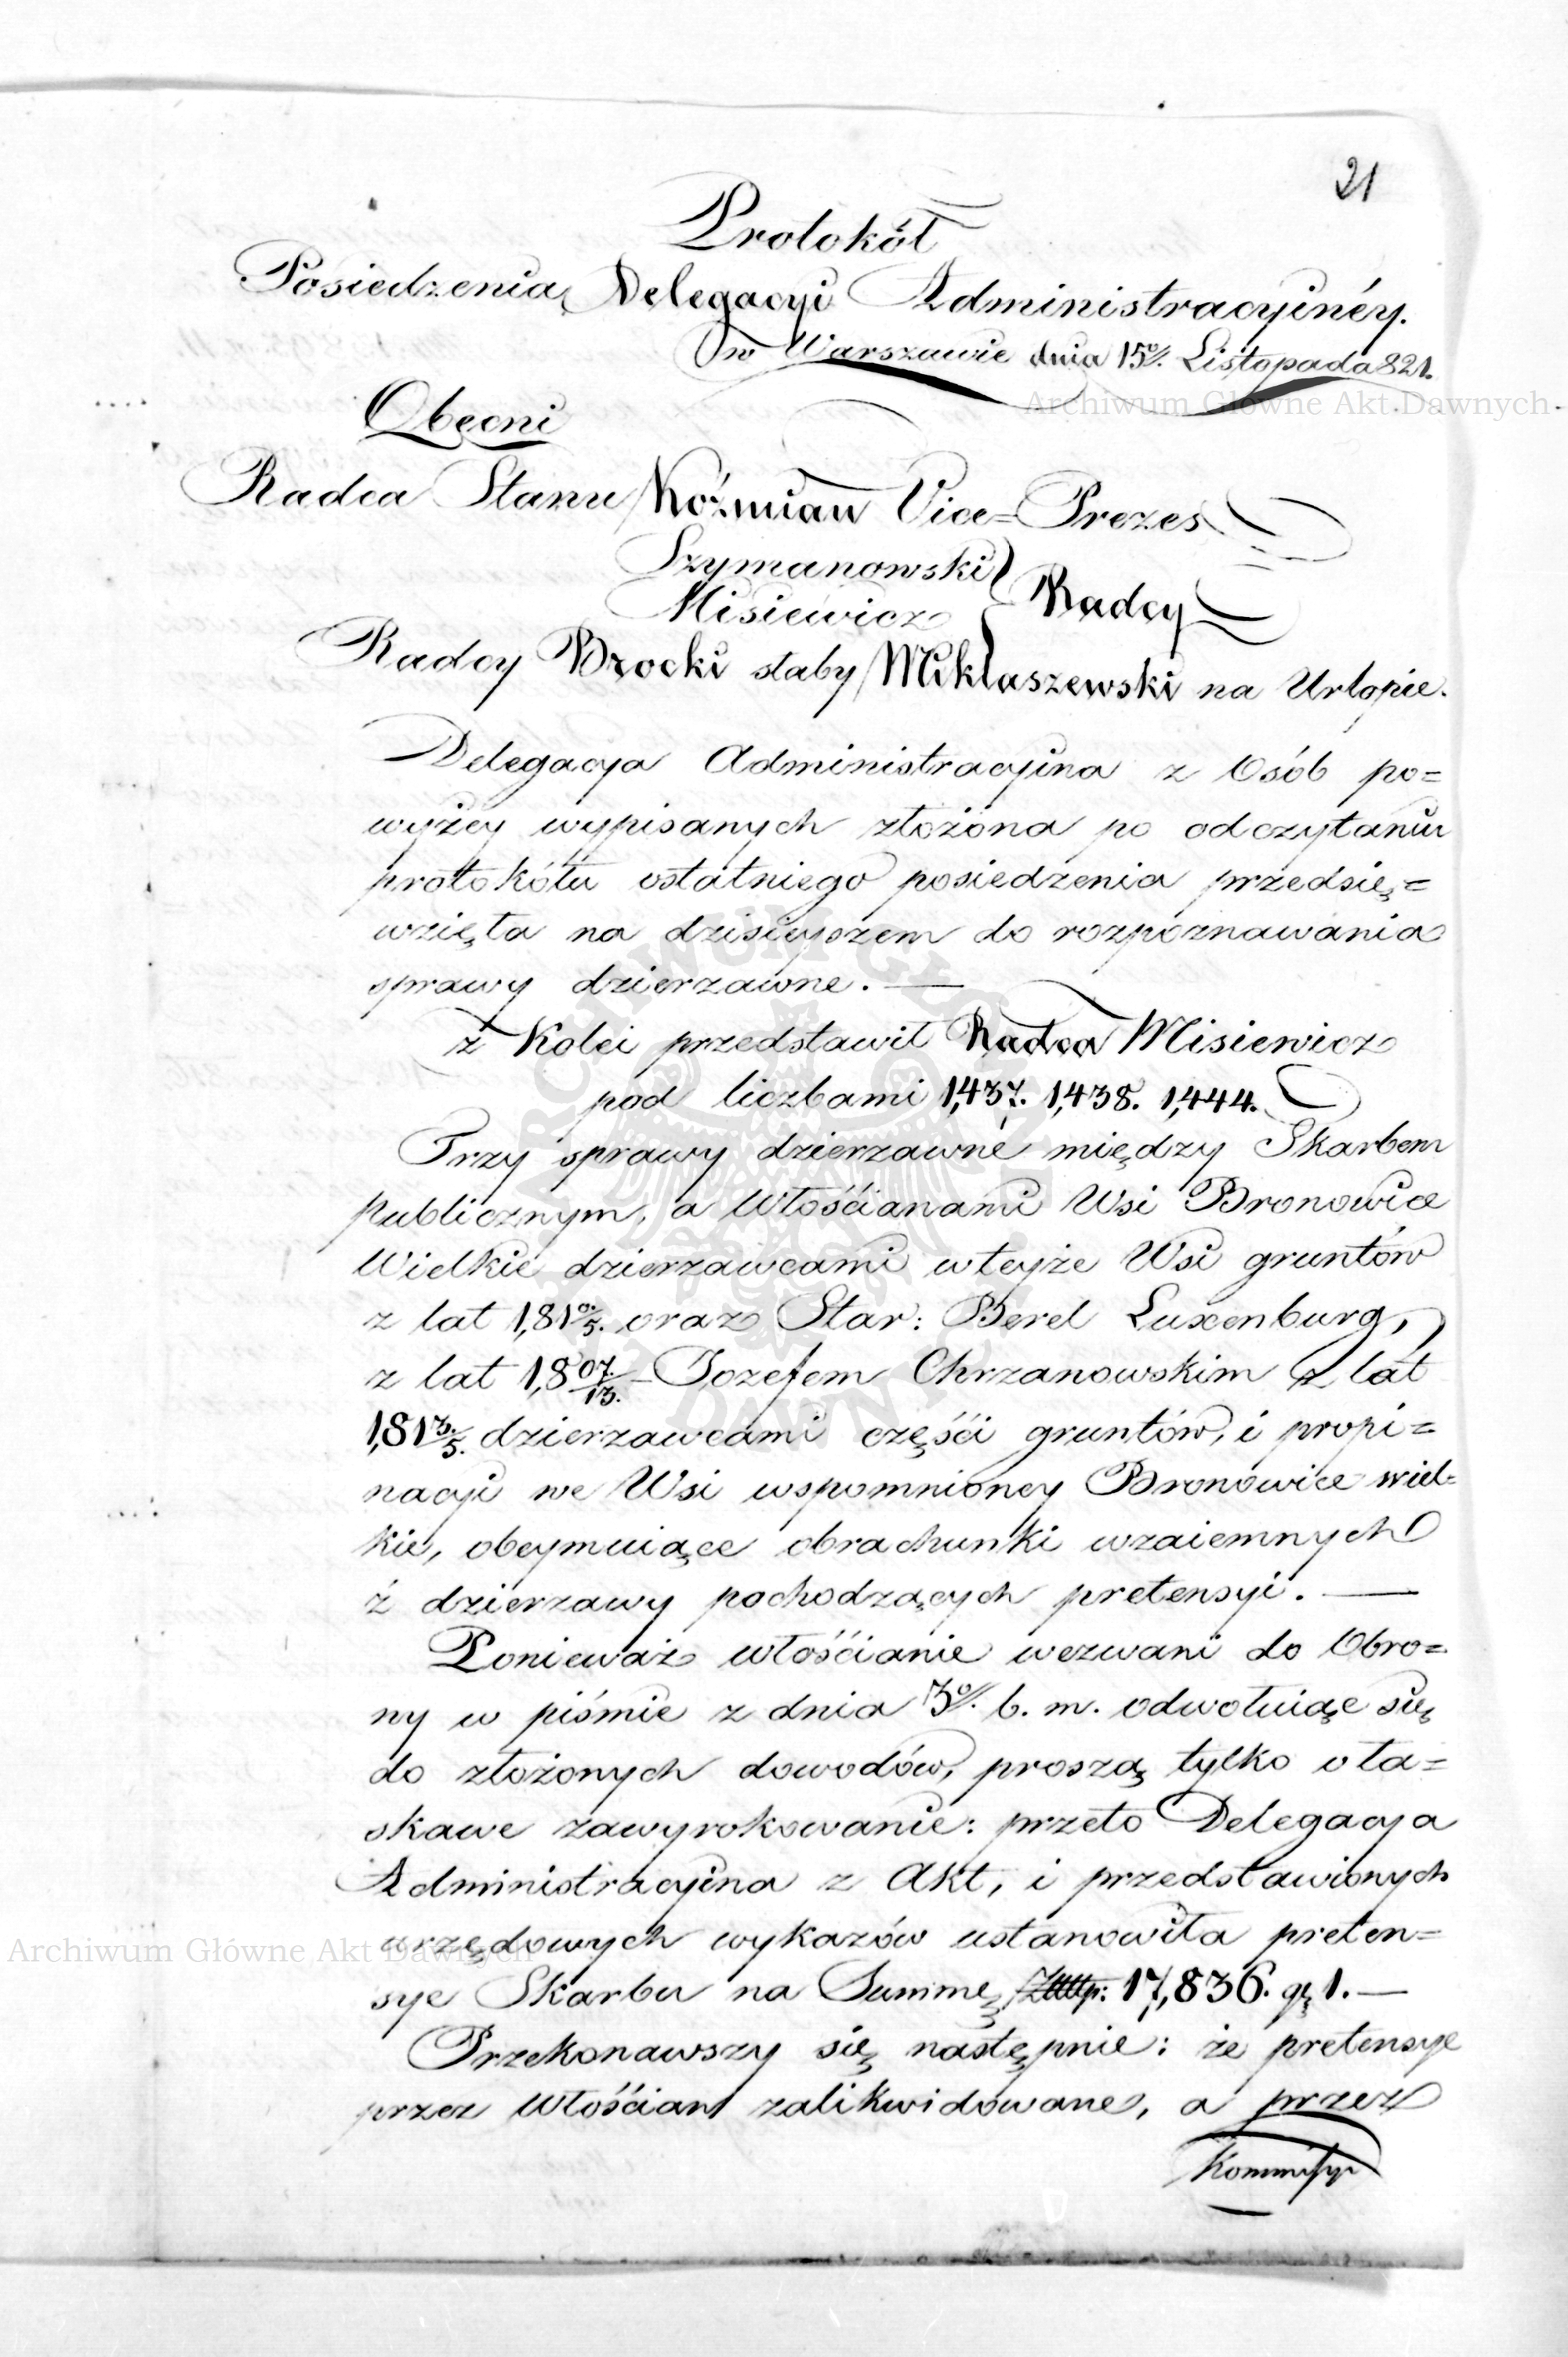 21
Protokół
Posiedzenia Delegacyi Administracyinéy.
w Warszawie dnia 15º/. Listopada 821.
Archiwum Główne Akt Dawnych
Obecni
Radca Stanu Koźmian Vice=Prezes
Szymanowski
Misiewicz } Radcy
Radcy Brocki słaby Miklaszewski na Urlopie.
Delegacya Administracyina z Osób po=
wyżey wypisanych złożona po odczytaniu
protokółu ostatniego posiedzenia przedsię=
wzięta na dzisieyszem do rozpoznawania
sprawy dzierzawne. —
z Kolei przedstawił Radca Misiewicz
pod liczbami 1,437. 1,438. 1,444.
Trzy sprawy dzierzawne między Skarbem
publicznym, a Włośćianami Wsi Bronowice
Wielkie dzierzawcami wteyże Wsi gruntów
z lat 1,81º/5. oraz Star: Berel Luxenburg,
z lat 1,807/13. Jozefem Chrzanowskim z lat
1,813/5. dzierzawcami częśći gruntów, i propi=
nacyi we Wsi wspomnioney Bronowice wiel=
kie, obeymuiące obrachunki wzaiemnych
z dzierzawy pochodzących pretensyi. —
Ponieważ włośćianie wezwani do Obro=
ny w piśmie z dnia 3º/. b. m. odwołuiąc się
do złożonych dowodów, proszą tylko o ła=
skawe zawyrokowanie: przeto Delegacya
Administracyina z Akt, i przedstawionych
urzędowych wykazów ustanowiła preten=
Archiwum Główne Akt Dawnych
sye Skarbu na Summę Złtp: 17,836. gr 1. —
Przekonawszy się następnie: że pretensye
przez Włośćian zalikwidowane, a przez
Kommissyi
ARCHIWUM GŁÓWNE AKT DAWNYCH